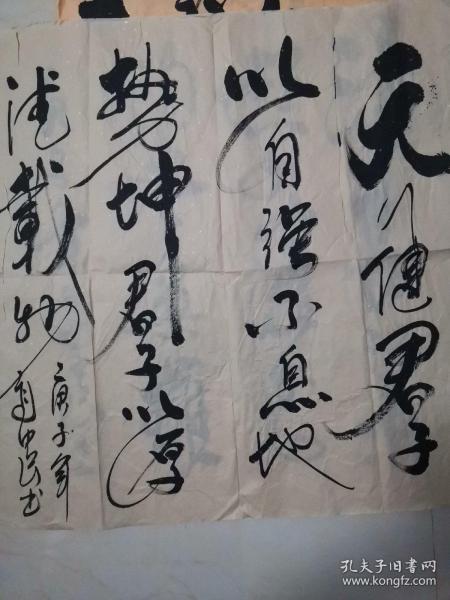 天行健君子
以自强不息地
势坤君子以厚
德载物
庚子年
书
孔夫子旧书网
www.kongfz.com